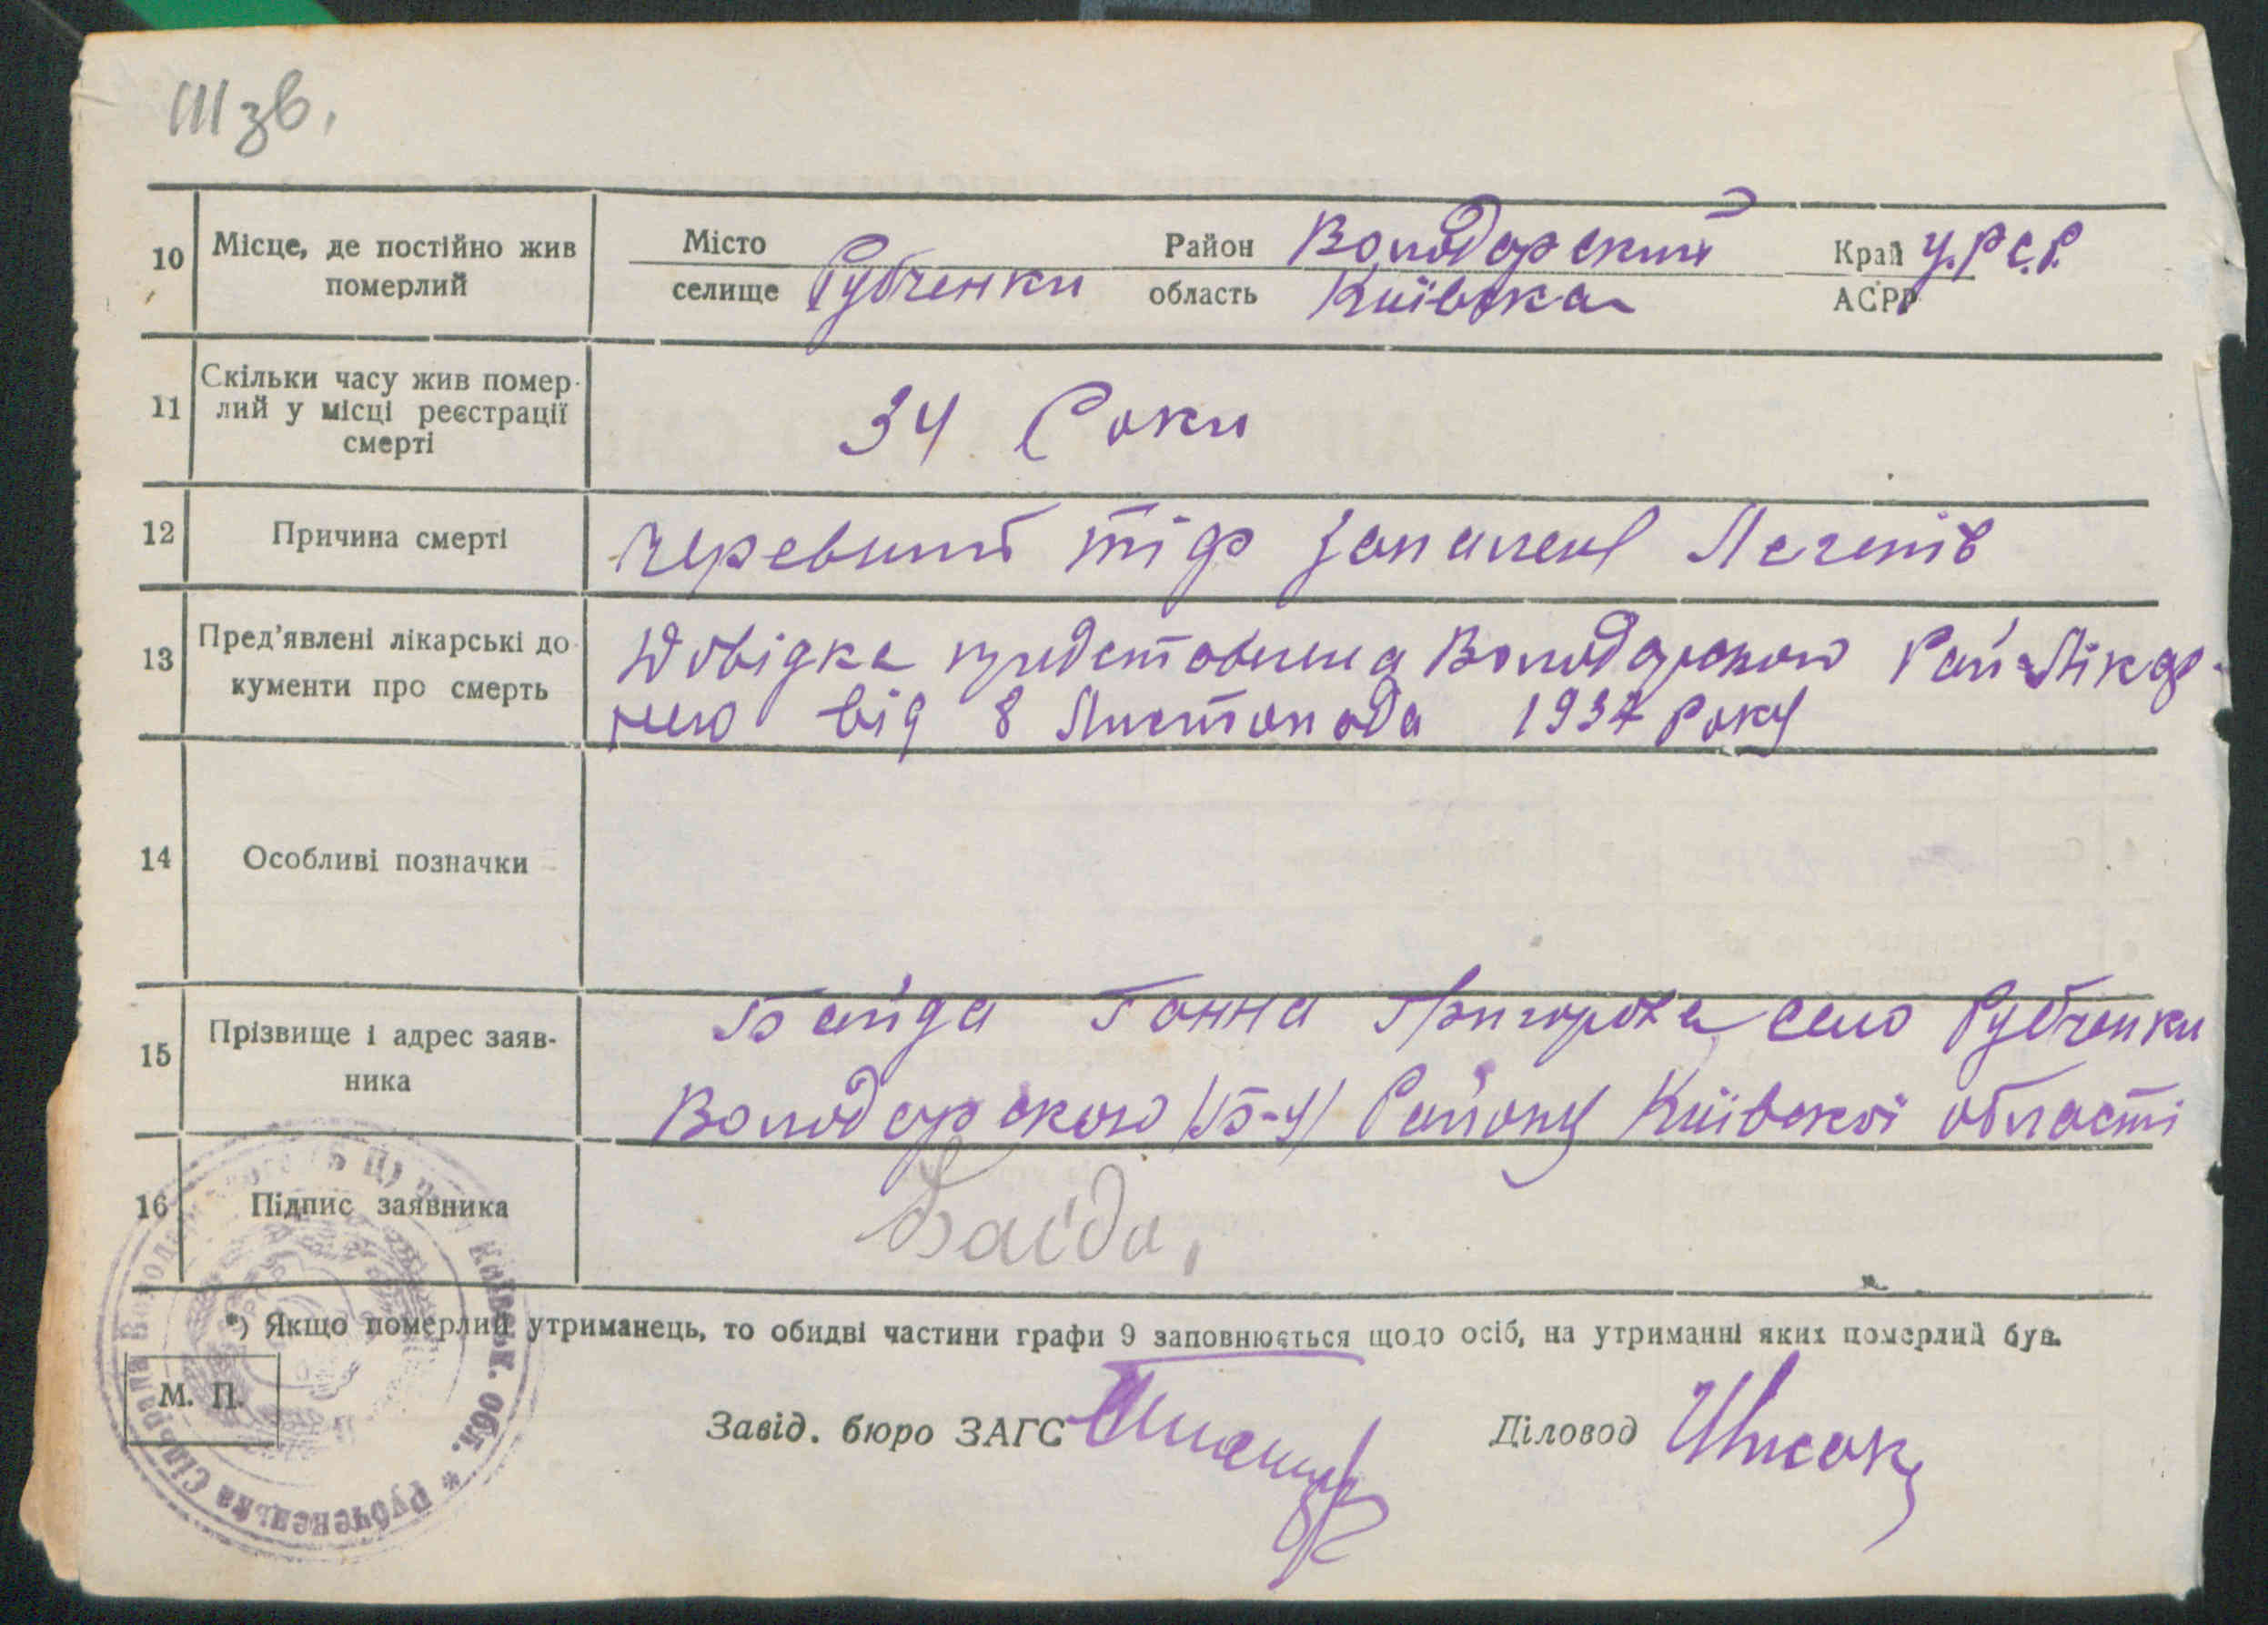 III зв.
10 Місце, де постійно жив померлий
Місто селище Рубченки Район Володарський область Київська Край АСРР У.Р.С.Р.
11 Скільки часу жив помер-
лий у місці реєстрації
смерті
34 Роки
12 Причина смерті
Черевний тіф запалені Легенів
13 Пред'явлені лікарські до-
кументи про смерть
Довідка представлена Володарською Рай-Лікар-
нею від 8 Листопада 1937 року
14 Особливі позначки
15 Прізвище і адрес заяв-
ника
Байда Ганна село Рубченки
Володарского /Б-Ц/ Району Київскої области
16 Підпис заявника
Байда,
*) Якщо померлий утриманець, то обидві частини графи 9 заповнюється щодо осіб, на утриманні яких померлий був.
М. П.
Завід. бюро ЗАГС
Діловод
Рубченецька Сільрада Володарського (Б Ц) р. Київськ. обл. *